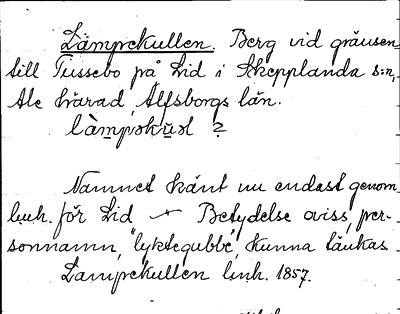 Lämpekullen. Berg vid gränsen
till Tussebo på Lid i Skepplanda s:n,
Ale härad, Älfsborgs län.
Namnet känt nu endast genom
lmh. för Lid Betydelse oviss, per-
sonnamn, "lyktegubbe", kunna tänkas
Lampekullen lmh. 1857.